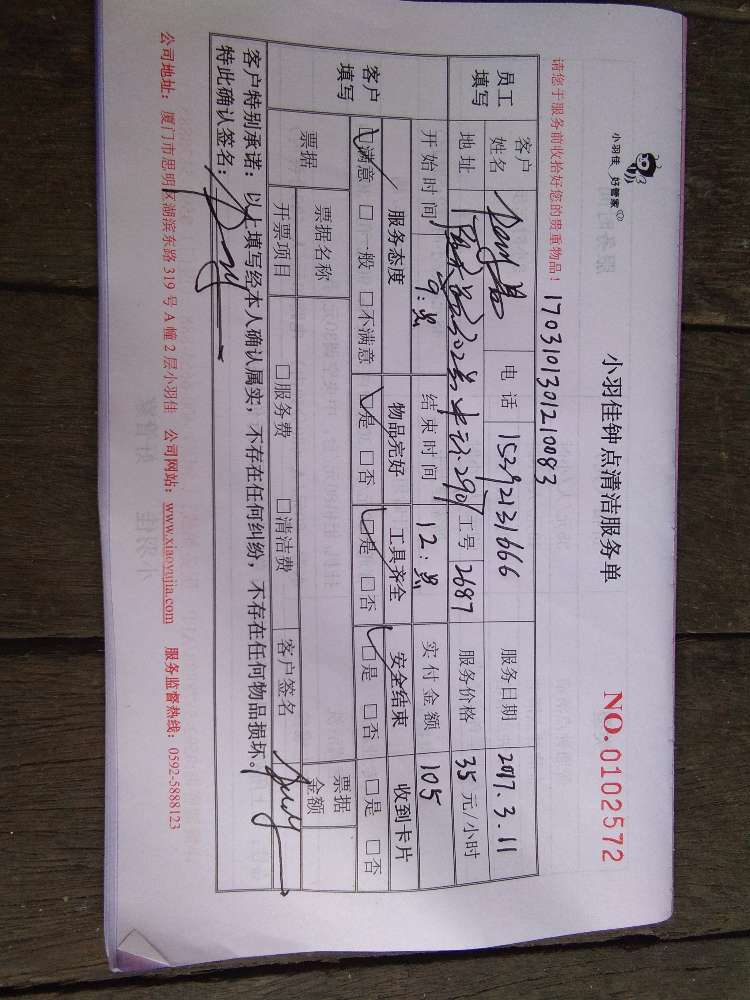 小羽佳 好管家
小羽佳钟点清洁服务单
NO. 0102572
请您于服务前收拾好您的贵重物品！
1703101301210083
员工填写
客户姓名
电话 15392131666
服务日期 2017.3.11
地址
工号 2687
服务价格 35 元/小时
开始时间 9:点
结束时间 12:点
实付金额 105
客户填写
服务态度 物品完好 工具齐全 安全结束 收到卡片
☑满意 □一般 □不满意 ☑是 □否 ☑是 □否 ☑是 □否 □是 □否
票据
票据名称
票据金额
开票项目 □服务费 □清洁费 客户签名
客户特别承诺：以上填写经本人确认属实，不存在任何纠纷，不存在任何物品损坏。
特此确认签名：
公司地址：厦门市思明区湖滨东路 319 号 A 幢 2 层小羽佳 公司网站：www.xiaoyujia.com 服务监督热线：0592-5888123